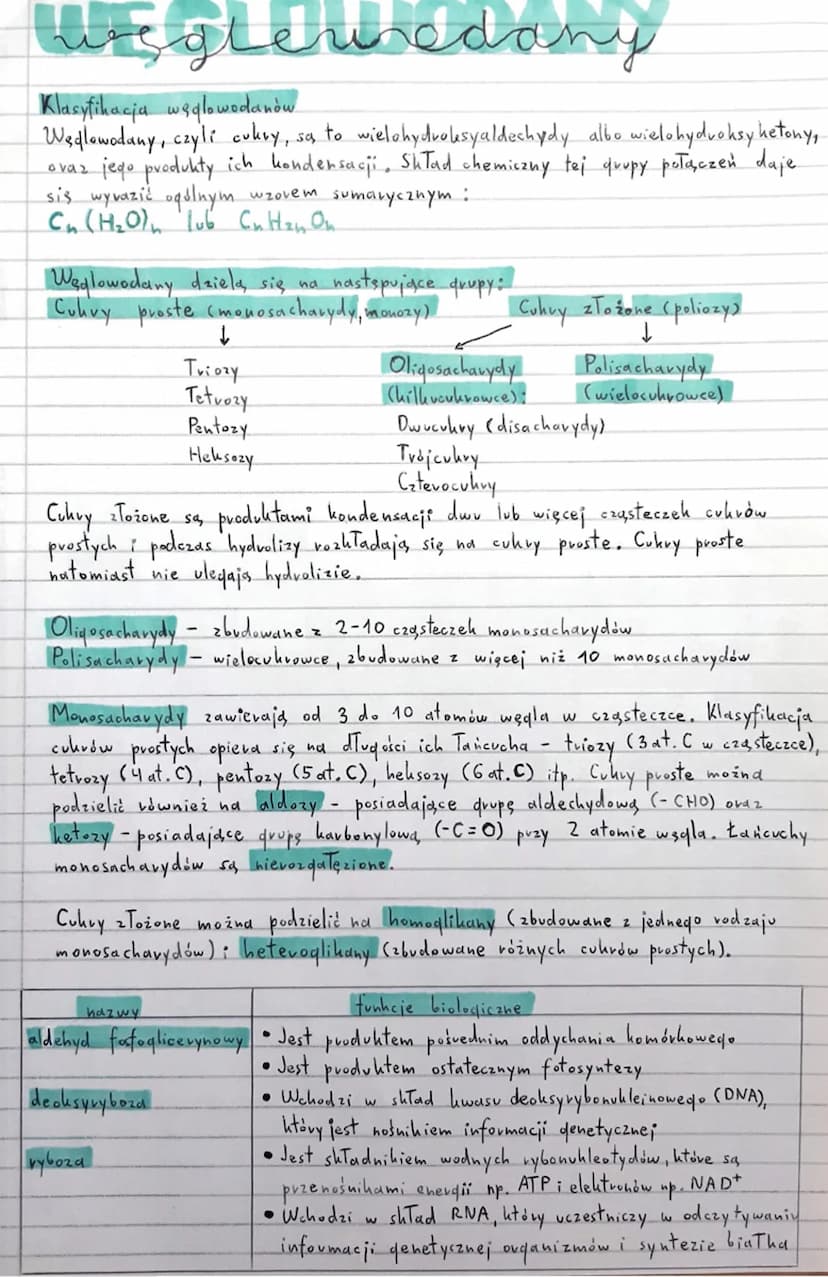 WĘGLOWODANY
węglowodany
Klasyfikacja węglowodanów
Węglowodany, czyli cukry, są to wielohydroksyaldechydy albo wielohydroksyketony,
oraz jego produkty ich kondensacji. Skład chemiczny tej grupy połączeń daje
się wyrazić ogólnym wzorem sumarycznym:
Cn(H2O)n lub CnH2nOn
Węglowodany dzielą się na następujące grupy:
Cukry proste (monosacharydy, monozy)
Cukry złożone (poliozy)
↓
↓
Triozy
Tetrozy
Pentozy
Heksozy
Oligosacharydy
(kilkucukrowce):
Dwucukry (disacharydy)
Trójcukry
Czterocukry
Polisacharydy
(wielocukrowce)
Cukry złożone są produktami kondensacji dwu lub więcej cząsteczek cukrów
prostych i podczas hydrolizy rozkładają się na cukry proste. Cukry proste
natomiast nie ulegają hydrolizie.
Oligosacharydy - zbudowane z 2-10 cząsteczek monosacharydów
Polisacharydy - wielocukrowce, zbudowane z więcej niż 10 monosacharydów
Monosacharydy zawierają od 3 do 10 atomów węgla w cząsteczce. Klasyfikacja
cukrów prostych opiera się na długości ich łańcucha - triozy (3 at. C w cząsteczce),
tetrozy (4 at. C), pentozy (5 at. C), heksozy (6 at. C) itp. Cukry proste można
podzielić również na aldozy - posiadające grupę aldechydową (-CHO) oraz
ketozy - posiadające grupę karbonylową (-C=O) przy 2 atomie węgla. Łańcuchy
monosacharydów są nierozgałęzione.
Cukry złożone można podzielić na homoglikany (zbudowane z jednego rodzaju
monosacharydów) i heteroglikany (zbudowane różnych cukrów prostych).
nazwy
funkcje biologiczne
aldehyd fosfoglicerynowy
• Jest produktem pośrednim oddychania komórkowego
• Jest produktem ostatecznym fotosyntezy
deoksyryboza
• Wchodzi w skład kwasu deoksyrybonukleinowego (DNA),
który jest nośnikiem informacji genetycznej
ryboza
• Jest składnikiem wodnych rybonukleotydów, które są
przenośnikami energii np. ATP i elektronów np. NAD+
• Wchodzi w skład RNA, który uczestniczy w odczytywaniu
informacji genetycznej organizmów i syntezie białka